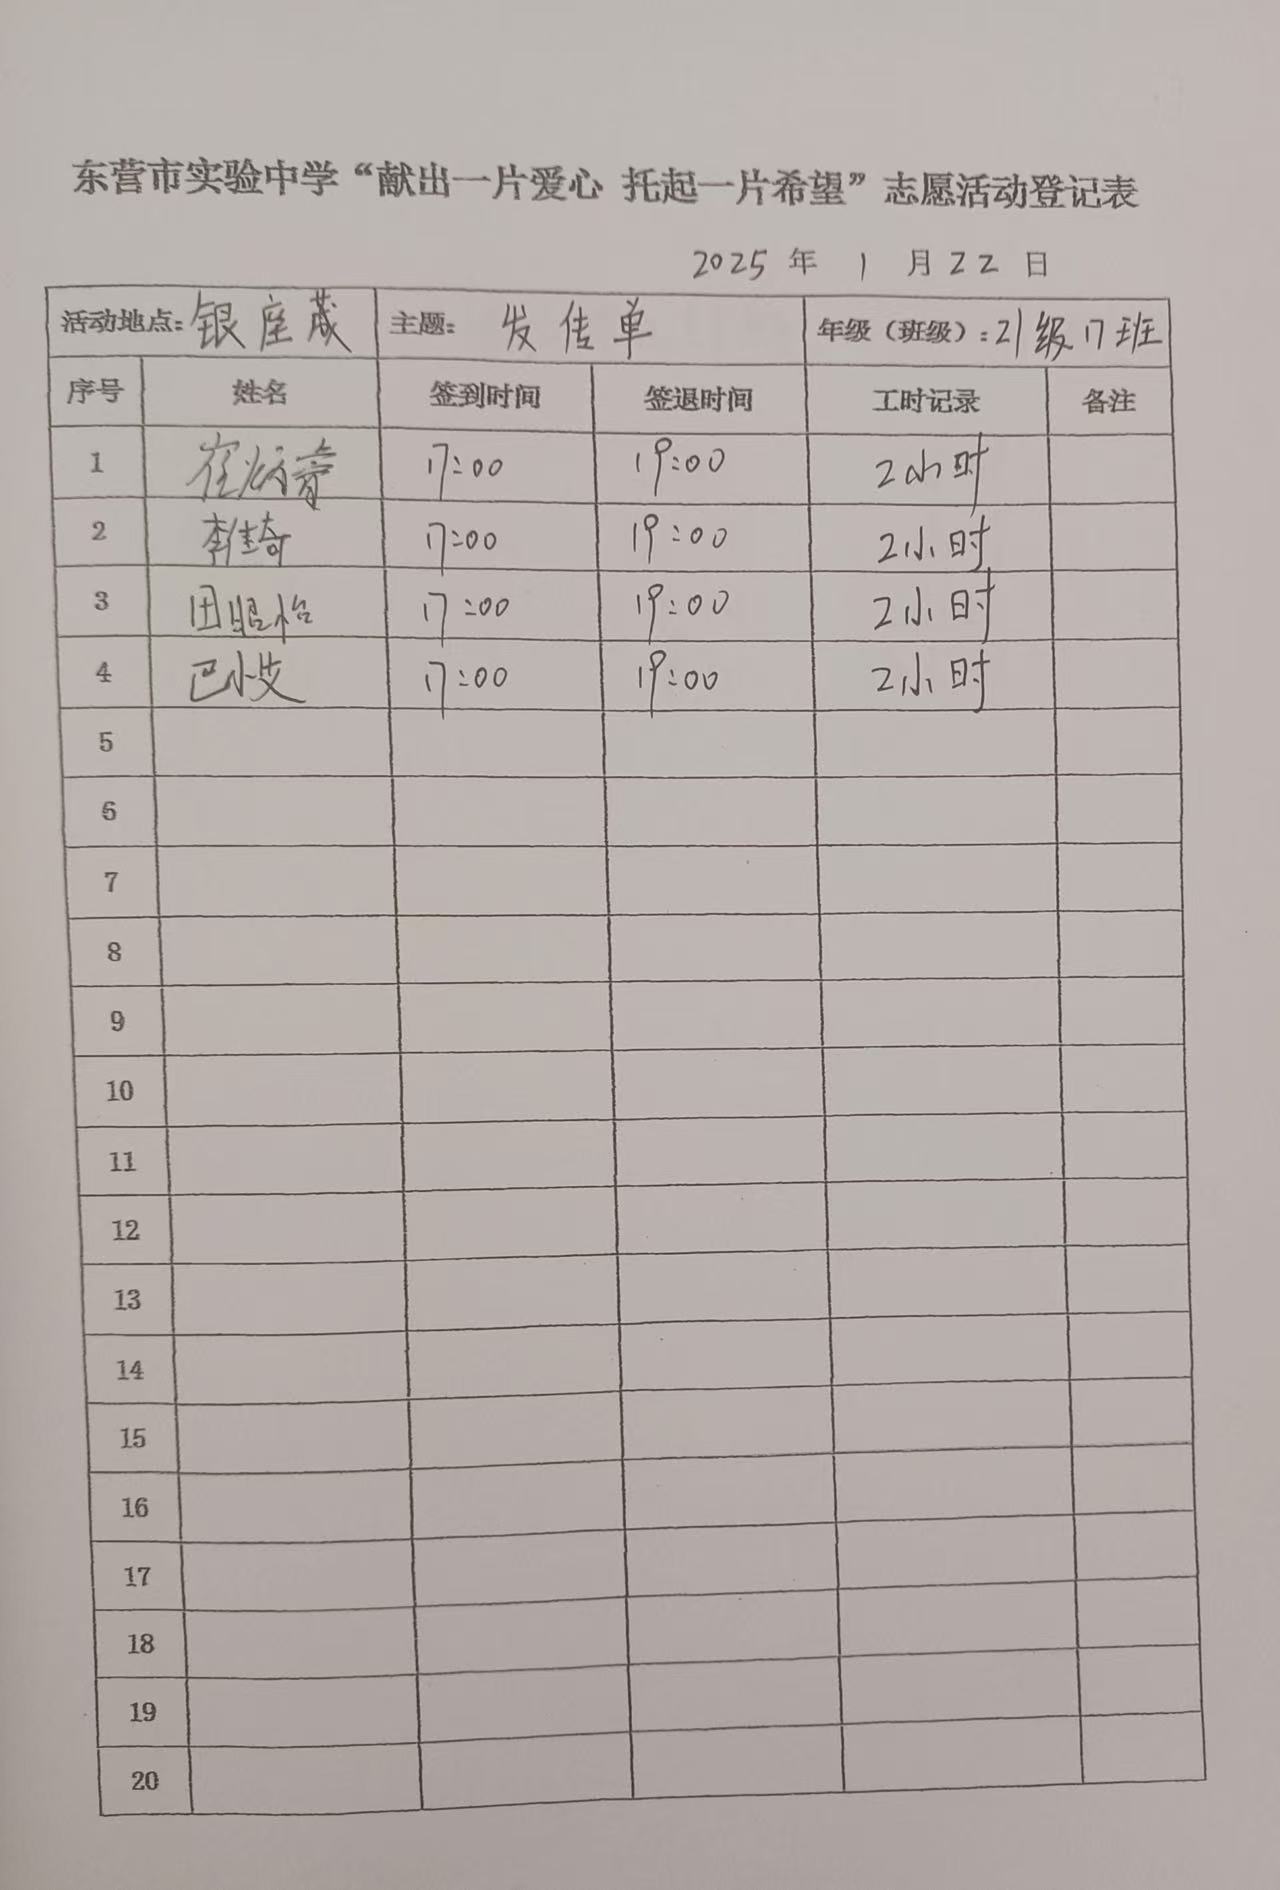 东营市实验中学“献出一片爱心 托起一片希望”志愿活动登记表
2025 年 1 月 22 日
活动地点：银座 主题：发传单 年级（班级）：21级17班
序号 姓名 签到时间 签退时间 工时记录 备注
1 崔炳 17:00 19:00 2小时
2 李佳琦 17:00 19:00 2小时
3 田 怡 17:00 19:00 2小时
4 巴小 17:00 19:00 2小时
5
6
7
8
9
10
11
12
13
14
15
16
17
18
19
20